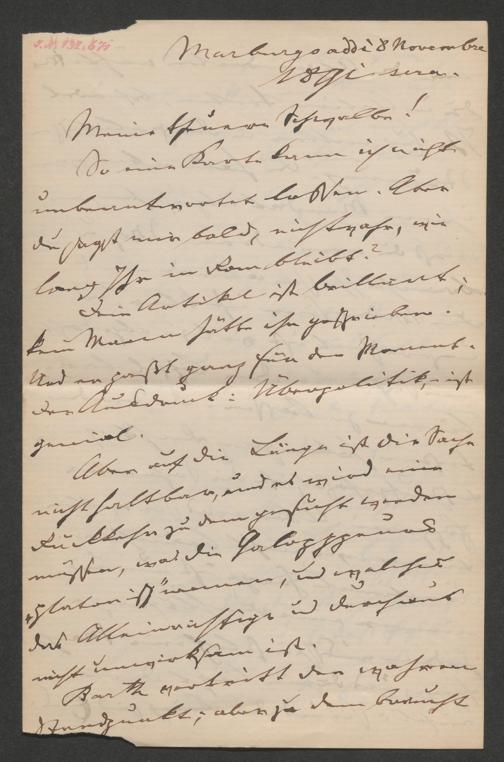 Marburgo addì 8 Novembre
sera.
Meine theuere Schwalbe!
So eine Karte kann ich nicht
unbeantwortet lassen. Aber
du sagst mir bald, nicht wahr, wie
lang Ihr in Rom bleibt?
Dein Artikel ist brilliant;
kein Mann hätte ihn geschrieben.
Und er paßt ganz für den Moment.
Der Ausdruck: Überpolitik, ist
genial.
Aber auf die Länge ist die Sache
nicht haltbar, und es wird eine
Rückkehr zu dem gesucht werden
müssen, was die
"platonisch" nennen, und welches
das Alleinrichtige und durchaus
nicht unwirksam ist.
Barth vertritt den wahren
Standpunkt; aber zu dem braucht